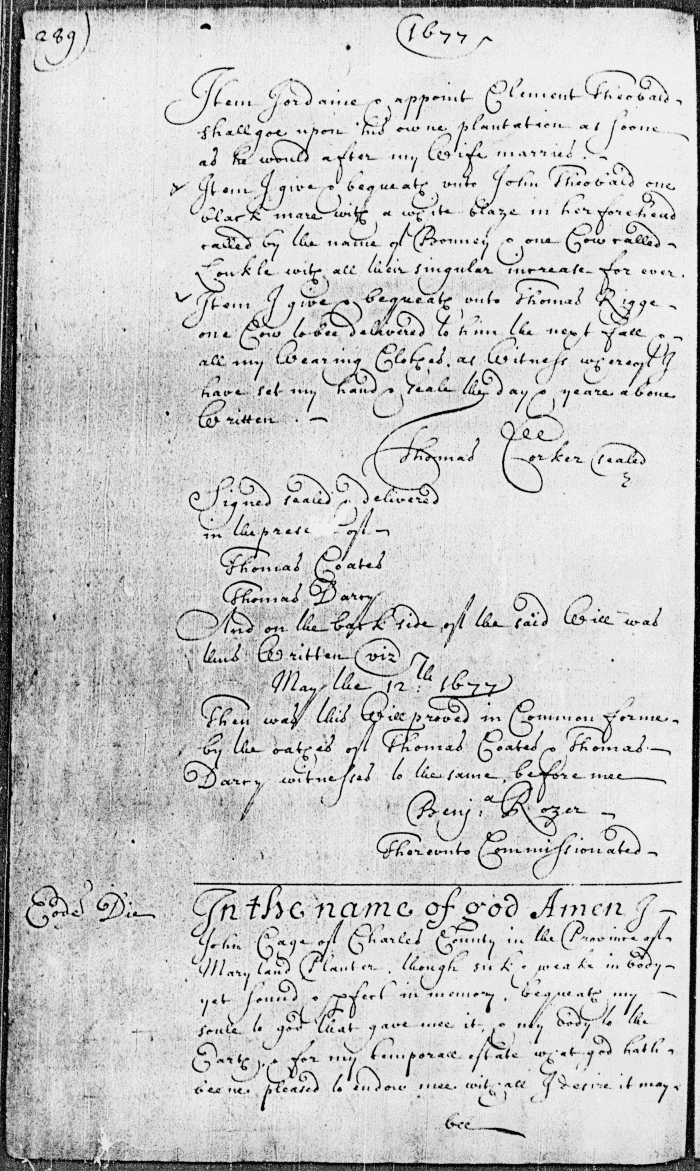 289
1677
Item I ordaine & appoint Clement Theobald
shall goe upon his owne plantation as soone
as he would after my Wife marries.
Item I give & bequeath unto John Theobald one
black mare with a white blaze in her forehead
called by the name of Bonney & one Cow called
with all their singular increase for ever.
Item I give & bequeath unto Thomas Rigge
one Cow to bee delivered to him the next fall &
all my Wearing Clothes, as Witness whereof I
have set my hand & seale the day & yeare above
Written.
Thomas Corker sealed
Signed sealed & delivered
in the prese of
Thomas Coates
Thomas Darcy
And on the back side of the said Will was
thus Written viz
May the 12th: 1677
Then was this Will proved in Common forme
by the oathes of Thomas Coates & Thomas
Darcy witnesses to the same before mee
Benj:a Rozer
Thereunto Commissionated
Eode' Die
In the name of god Amen I
John Cage of Charles County in the Province of
Maryland Planter, though sick & weake in body
yet sound & pfect in memory, bequeath my
soule to god that gave mee it, & my body to the
Earth, & for my temporall estate what god hath
beene pleased to endow mee withall I desire it may
bee